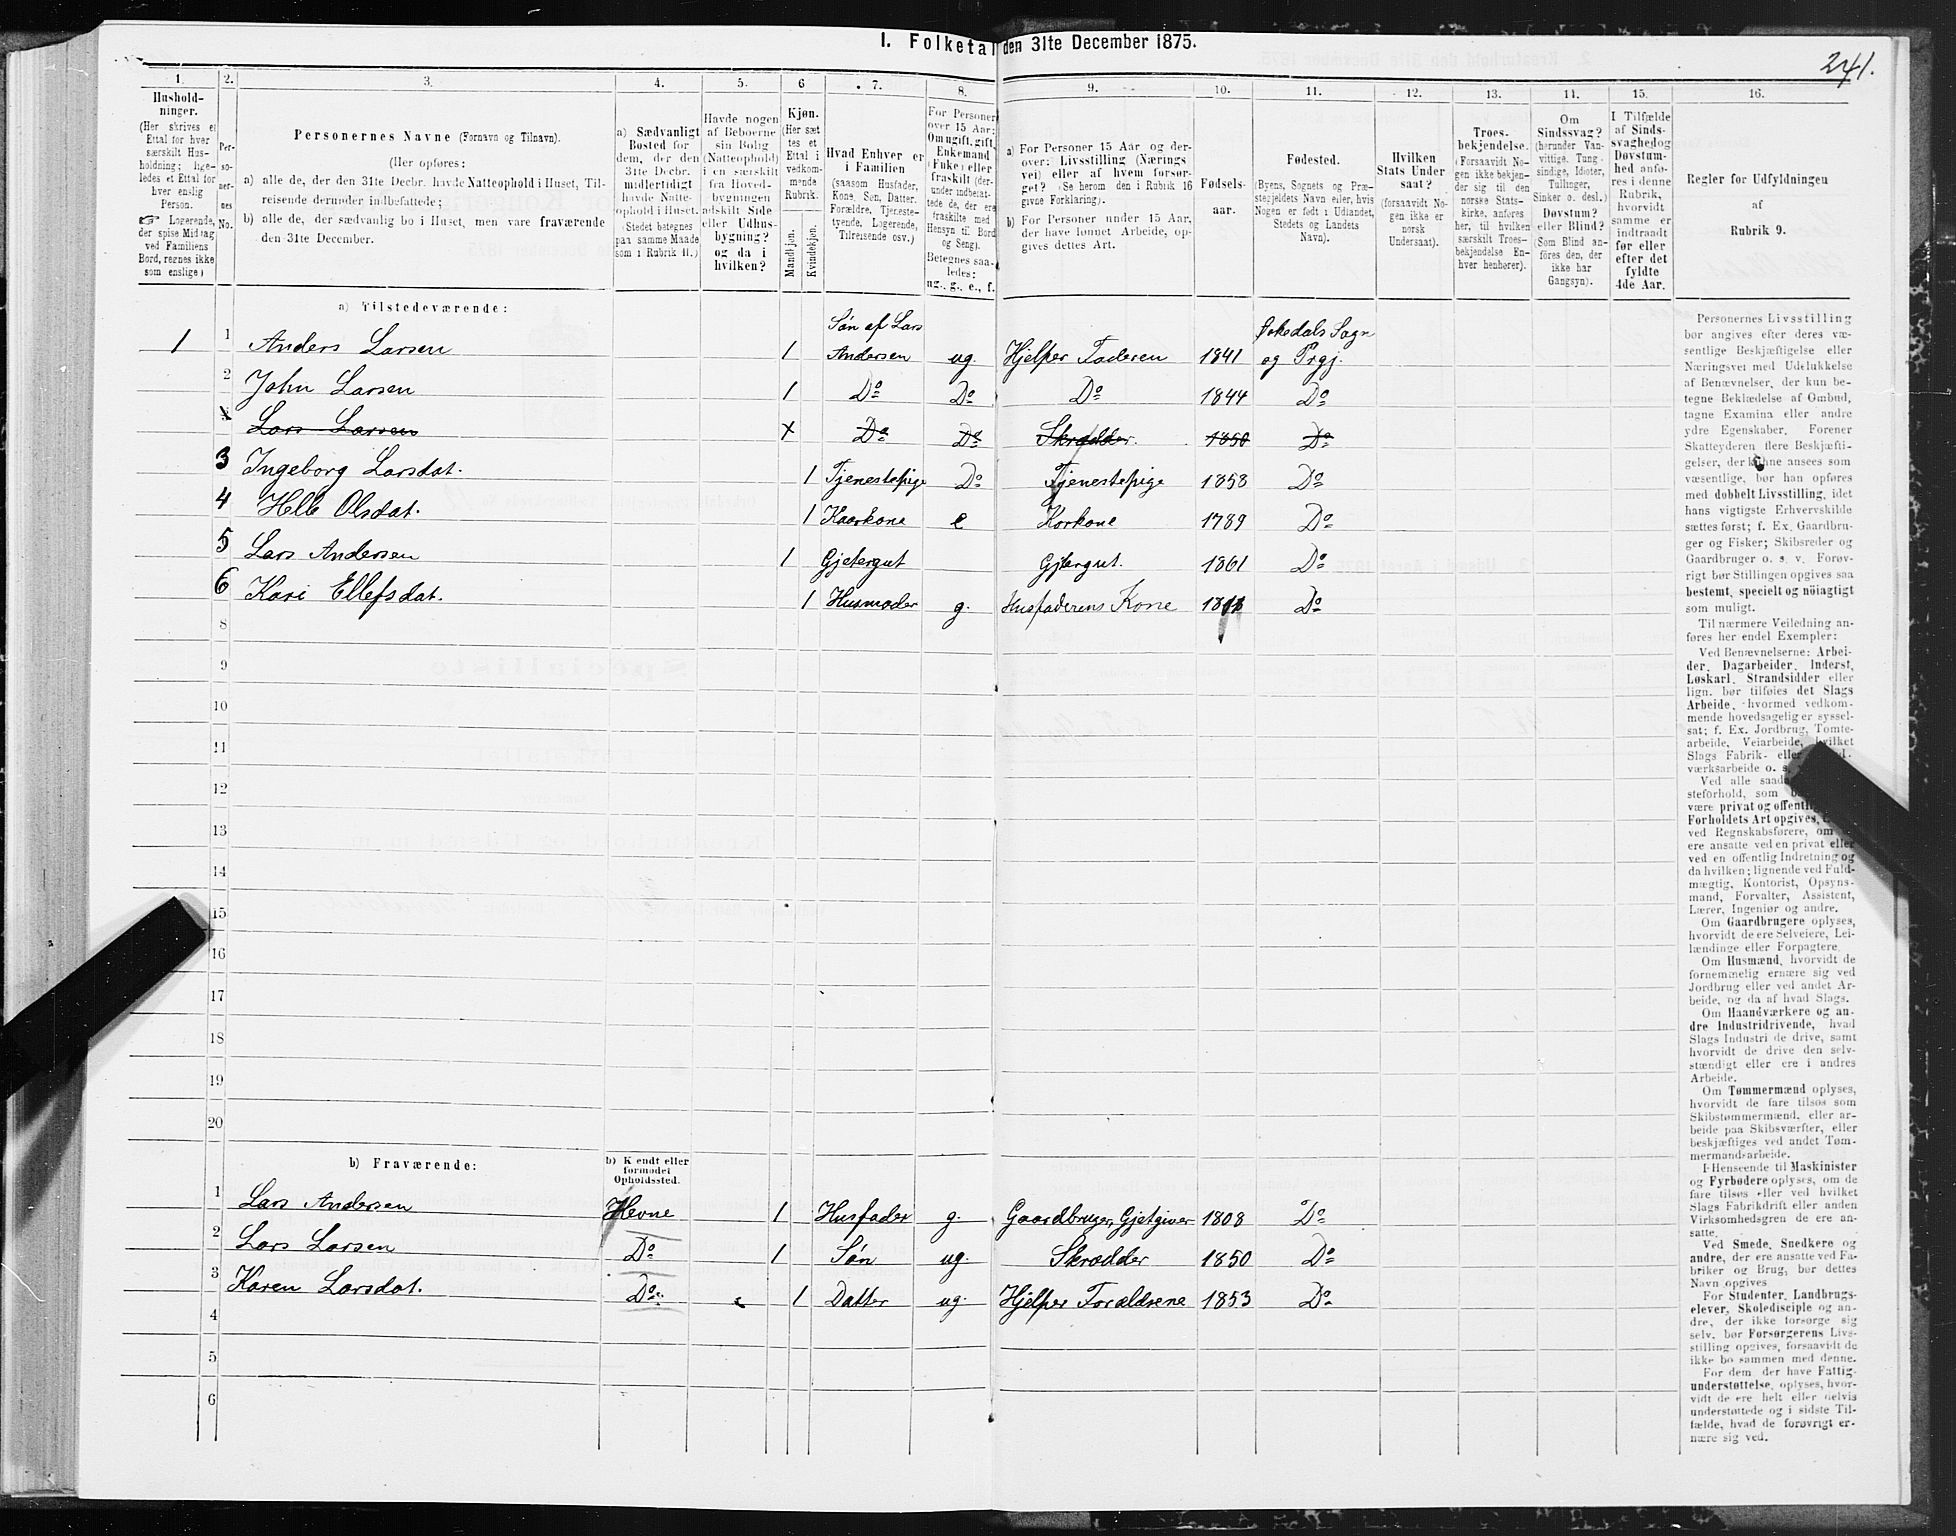 I. Folketal den 31te December 1875.
241.
1. 2. 3. 4. 5. 6 7. 8. 9. 10. 11. 12. 13. 14. 15. 16.
Hushold-
ninger.
(Her skrives et
Ettal for hver
særskilt Hus-
holdning; lige-
ledes et Ettal for
hver enslig
Person.
☞ Logerende,
der spise Middag
ved Familiens
Bord, regnes ikke
som enslige)
Per-
so-
ner-
nes
No.
Personernes Navne (Fornavn og Tilnavn).
(Her opføres:
a) alle de, der den 31te Decbr. havde Natteophold i Huset, Til-
reisende derunder indbefattede;
b) alle de, der sædvanlig bo i Huset, men vare fraværende
den 31te December.
a) Sædvanligt
Bosted for
dem, der den
31te Decbr.
midlertidigt
havde Natte-
ophold i Huset.
(Stedet betegnes
paa samme Maade
som i Rubrik 11.)
Havde nogen
af Beboerne
sin Bolig
(Natteophold)
i en særskilt
fra Hoved-
bygningen
adskilt Side-
eller Udhus-
bygning?
og da i
hvilken?
Kjøn.
(Her sæt-
tes et
Ettal i
vedkom-
mende
Rubrik.
Mandkjøn.
Kvindekjøn.
Hvad Enhver er
i Familien
(saasom Husfader,
Kone, Søn, Datter,
Forældre, Tjeneste-
tyende, Logerende,
Tilreisende osv.)
For Personer
over 15 Aar:
Om ugift, gift,
Enkemand
(Enke) eller
fraskilt (der-
under indbefat-
tede de, der ere
fraskilte med
Hensyn til Bord
og Seng).
Betegnes saa-
ledes:
ug., g., e., f.
a) For Personer 15 Aar og der-
over: Livsstilling (Nærings-
vei) eller af hvem forsør-
get? (Se herom den i Rubrik 16
givne Forklaring).
b) For Personer under 15 Aar,
der have lønnet Arbeide, op-
gives dettes Art.
Fødsels-
aar.
Fødested.
(Byens, Sognets og Præ-
stegjeldets Navn eller, hvis
Nogen er født i Udlandet,
Stedets og Landets
Navn).
Hvilken
Stats Under-
saat?
(forsaavidt No-
gen ikke er
norsk
Undersaat).
Troes-
bekjendelse.
(Forsaavidt No-
gen ikke bekjen-
der sig til den
norske Stats-
kirke, anføres
her, til hvilken
særskilt Troes-
bekjendelse En-
hver henhører).
Om
Sindssvag?
(herunder Van-
vittige, Tung-
sindige, Idioter,
Tullinger,
Sinker o. desl.)
Døvstum?
eller Blind?
(Som Blind an-
føres den, der
ikke har
Gangsyn).
I Tilfælde
af Sinds-
svaghed og
Døvstum-
hed anfø-
res i denne
Rubrik,
hvorvidt
samme er
indtraadt
før eller
efter det
fyldte
4de Aar.
Regler for Udfyldningen
af
Rubrik 9.
a) Tilstedeværende:
1 1 Anders Larsen 1 Søn af Lars Andersen ug Hjelper Faderen 1841 Ørkedals Sogn og Prgj.
2 John Larsen 1 Do Do Do 1844 Do
Lars Larsen Do Do Skrædder. 1850 Do
3 Ingeborg Larsdat. 1 Tjenestepige Do Tjenestepige 1858 Do
4 Helle Olsdat. 1 Kaarkone e Korkone 1789 Do
5 Lars Andersen 1 Gjetergut Gjtergut. 1861 Do
6 Kari Ellefsdat. 1 Husmoder g. Husfaderens Kone Do
8
9
10
11
12
13
14
15
16
17
18
19
20
b) Fraværende:
b) Kjendt eller
formodet
Opholdssted.
1 Lars Andersen Hevne 1 Husfader g. Gaardbruger, Gjetgiver 1808 Do
2 Lars Larsen Do 1 Søn ug. Skrædder 1850 Do
3 Karen Larsdat. Do 1 Datter ug. Hjelper Forældrene 1853 Do
4
5
6
Personernes Livsstilling
bør angives efter deres væ-
sentlige Beskjæftigelse eller
Næringsvei med Udelukkelse
af Benævnelser, der kun be-
tegne Beklædelse af Ombud,
tagne Examina eller andre
ydre Egenskaber. Forener
Skatteyderen flere Beskjæfti-
gelser, der kunne ansees som
væsentlige, bør han opføres
med dobbelt Livsstilling, idet
hans vigtigste Erhvervskilde
sættes først; f. Ex. Gaardbru-
ger og Fisker; Skibsreder og
Gaardbruger o. s. v. Forøv-
rigt bør Stillingen opgives saa
bestemt, specielt og nøiagtigt
som muligt.
Til nærmere Veiledning an-
føres her endel Exempler:
Ved Benævnelserne: Arbei-
der, Dagarbeider, Inderst,
Løskarl, Strandsidder eller
lign. bør tilføies det Slags
Arbeide, hvormed vedkom-
mende hovedsagelig er syssel-
sat; f. Ex. Jordbrug, Tomte-
arbeide, Veiarbeide, hvilket
Slags Fabrik- eller
værksarbeide o. s.
Ved alle saad
steforhold, som
være privat og offentli
Forholdets Art opgives,
ved Regnskabsførere, om
ere ansatte ved en privat eller
ved en offentlig Indretning og
da hvilken; lignende ved Fuld-
mægtig, Kontorist, Opsyns-
mand, Forvalter, Assistent,
Lærer, Ingeniør og andre.
Om Gaardbrugere oplyses,
hvorvidt de ere Selveiere, Lei-
lændinge eller Forpagtere.
Om Husmænd, hvorvidt de
fornemmelig ernære sig ved
Jordbrug eller ved andet Ar-
beide, og da af hvad Slags.
Om Haandværkere og an-
dre Industridrivende, hvad
Slags Industri de drive, samt
hvorvidt de drive den selv-
stændigt eller ere i andres
Arbeide.
Om Tømmermænd oplyses,
hvorvidt de fare tilsøs som
Skibstømmermænd, eller ar-
beide paa Skibsværfter, eller
beskjæftiges ved andet Tøm-
mermandsarbeide.
I Henseende til Maskinister
og Fyrbødere oplyses, om de
fare tilsøs eller ved hvilket
Slags Fabrikdrift eller anden
Virksomhedsgren de ere an-
satte.
Ved Smede, Snedkere og
andre, der ere ansatte ved Fa-
briker og Brug, bør dettes
Navn opgives
For Studenter, Landbrugs-
elever, Skoledisciple og an-
dre, der ikke forsørge sig
selv, bør Forsørgerens Livs-
stilling opgives, forsaavidt de
ikke bo sammen med denne.
For dem, der have Fattig-
understøttelse, oplyses, hvor-
vidt de ere helt eller delvis
understøttede og i sidste Til-
fælde, hvad de forøvrigt er-
nære sig ved.